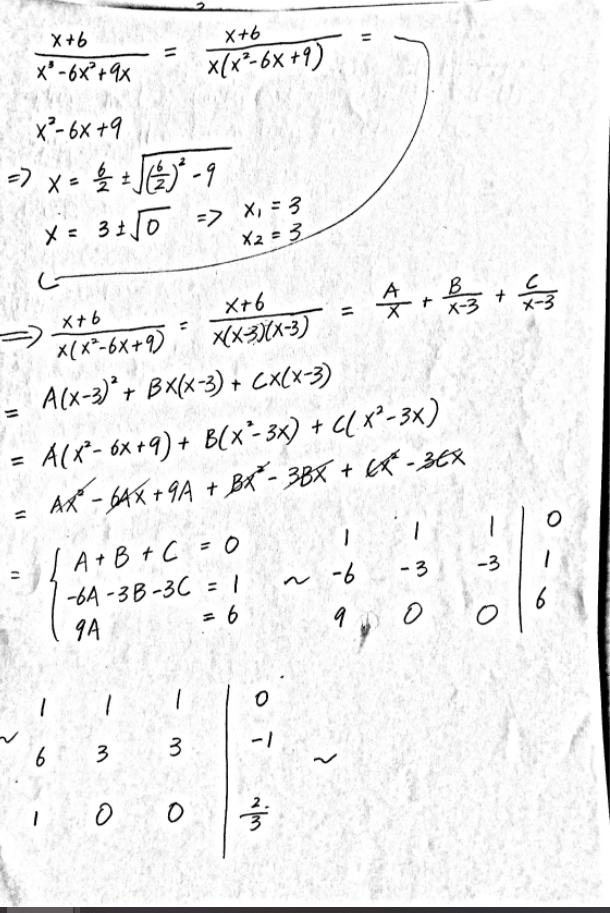 (x+6)/(x³-6x²+9x) = (x+6)/(x(x²-6x+9)) =
x²-6x+9
=> x = 6/2 ± √((6/2)²-9)
x = 3±√0 => x₁ = 3
x₂ = 3
=> (x+6)/(x(x²-6x+9)) = (x+6)/(x(x-3)(x-3)) = A/x + B/(x-3) + C/(x-3)
= A(x-3)² + Bx(x-3) + Cx(x-3)
= A(x²-6x+9) + B(x²-3x) + C(x²-3x)
= Ax² - 6Ax + 9A + Bx² - 3Bx + Cx² - 3Cx
= { A + B + C = 0
-6A - 3B - 3C = 1
9A = 6
~ 1 1 1 | 0
-6 -3 -3 | 1
9 0 0 | 6
~ 1 1 1 | 0
6 3 3 | -1 ~
1 0 0 | 2/3